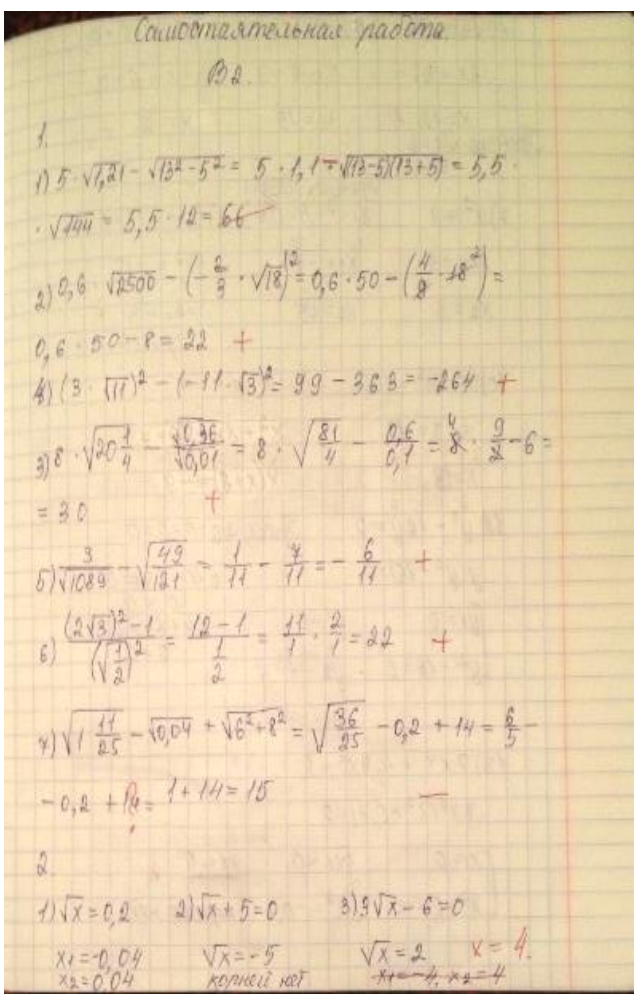 Самостаятельная работа.
В 2.
1.
1) 5 · √1,21 - √13² - 5² = 5 · 1,1 - √(13-5)(13+5) = 5,5 ·
· √144 = 5,5 · 12 = 66
2) 0,6 · √2500 - (-2/3 · √18)² = 0,6 · 50 - (4/9 · 18²) =
0,6 · 50 - 8 = 22 +
4) (3 · √11)² - (-11 · √3)² = 99 - 363 = -264 +
3) 8 · √20 1/4 - √0,36/√0,01 = 8 · √81/4 - 0,6/0,1 = 8 4 · 9/2 - 6 =
= 30 +
5) 3/√1089 - √49/121 = 1/11 - 7/11 = - 6/11 +
6) (2√3)² - 1/(√1/2)² = 12 - 1/1/2 = 11/1 · 2/1 = 22 +
7) √1 11/25 - √0,04 + √6² + 8² = √36/25 - 0,2 + 14 = 6/5 -
- 0,2 + 14 = 1 + 14 = 15 —
2.
1) √x = 0,2 2) √x + 5 = 0 3) 3√x - 6 = 0
x1 = -0,04 √x = -5 √x = 2 x = 4.
x2 = 0,04 корней нет x1 = -4, x2 = 4